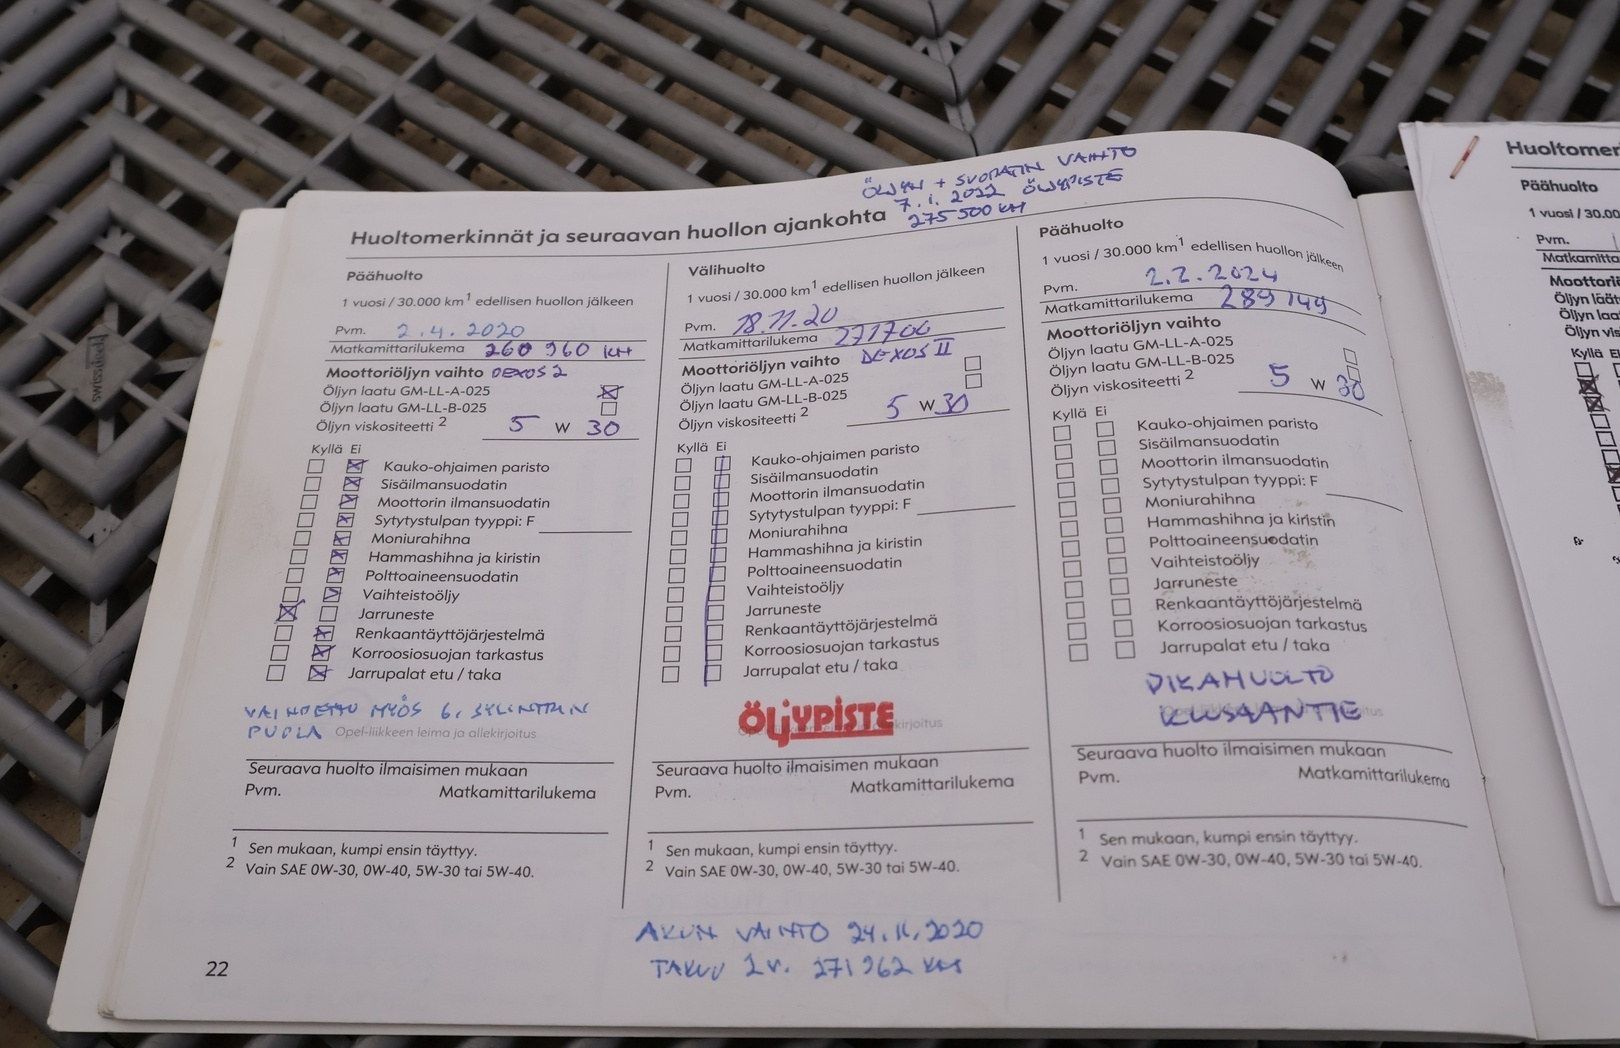 ÖLJYN + SUODATIN VAIHTO
7.1.2022 ÖLJYPISTE
275 500 KM
Huoltomerkinnät ja seuraavan huollon ajankohta
Päähuolto
1 vuosi / 30.000 km1 edellisen huollon jälkeen
Pvm. 2.4.2020
Matkamittarilukema 260 960 KM
Moottoriöljyn vaihto DEXOS 2
Öljyn laatu GM-LL-A-025
Öljyn laatu GM-LL-B-025
Öljyn viskositeetti 2 5 W 30
Kyllä Ei
Kauko-ohjaimen paristo
Sisäilmansuodatin
Moottorin ilmansuodatin
Sytytystulpan tyyppi: F
Moniurahihna
Hammashihna ja kiristin
Polttoaineensuodatin
Vaihteistoöljy
Jarruneste
Renkaantäyttöjärjestelmä
Korroosiosuojan tarkastus
Jarrupalat etu / taka
VAIHDETTU MYÖS 6. SYLINTERIN
PUOLA Opel-liikkeen leima ja allekirjoitus
Seuraava huolto ilmaisimen mukaan
Pvm. Matkamittarilukema
1 Sen mukaan, kumpi ensin täyttyy.
2 Vain SAE 0W-30, 0W-40, 5W-30 tai 5W-40.
Välihuolto
1 vuosi / 30.000 km1 edellisen huollon jälkeen
Pvm. 18.11.20
Matkamittarilukema 271700
Moottoriöljyn vaihto DEXOS II
Öljyn laatu GM-LL-A-025
Öljyn laatu GM-LL-B-025
Öljyn viskositeetti 2 5 W 30
Kyllä Ei
Kauko-ohjaimen paristo
Sisäilmansuodatin
Moottorin ilmansuodatin
Sytytystulpan tyyppi: F
Moniurahihna
Hammashihna ja kiristin
Polttoaineensuodatin
Vaihteistoöljy
Jarruneste
Renkaantäyttöjärjestelmä
Korroosiosuojan tarkastus
Jarrupalat etu / taka
ÖLJYPISTE
Seuraava huolto ilmaisimen mukaan
Pvm. Matkamittarilukema
1 Sen mukaan, kumpi ensin täyttyy.
2 Vain SAE 0W-30, 0W-40, 5W-30 tai 5W-40.
Päähuolto
1 vuosi / 30.000 km1 edellisen huollon jälkeen
Pvm. 2.2.2024
Matkamittarilukema 289 149
Moottoriöljyn vaihto
Öljyn laatu GM-LL-A-025
Öljyn laatu GM-LL-B-025
Öljyn viskositeetti 2 5 W 30
Kyllä Ei
Kauko-ohjaimen paristo
Sisäilmansuodatin
Moottorin ilmansuodatin
Sytytystulpan tyyppi: F
Moniurahihna
Hammashihna ja kiristin
Polttoaineensuodatin
Vaihteistoöljy
Jarruneste
Renkaantäyttöjärjestelmä
Korroosiosuojan tarkastus
Jarrupalat etu / taka
PIKAHUOLTO
KUUSAANTIE
Seuraava huolto ilmaisimen mukaan
Pvm. Matkamittarilukema
1 Sen mukaan, kumpi ensin täyttyy.
2 Vain SAE 0W-30, 0W-40, 5W-30 tai 5W-40.
AKUN VAIHTO 24.11.2020
TAKUU 2 v. 271 962 KM
22
Päähuolto
1 vuosi / 30.00
Pvm.
Kyllä